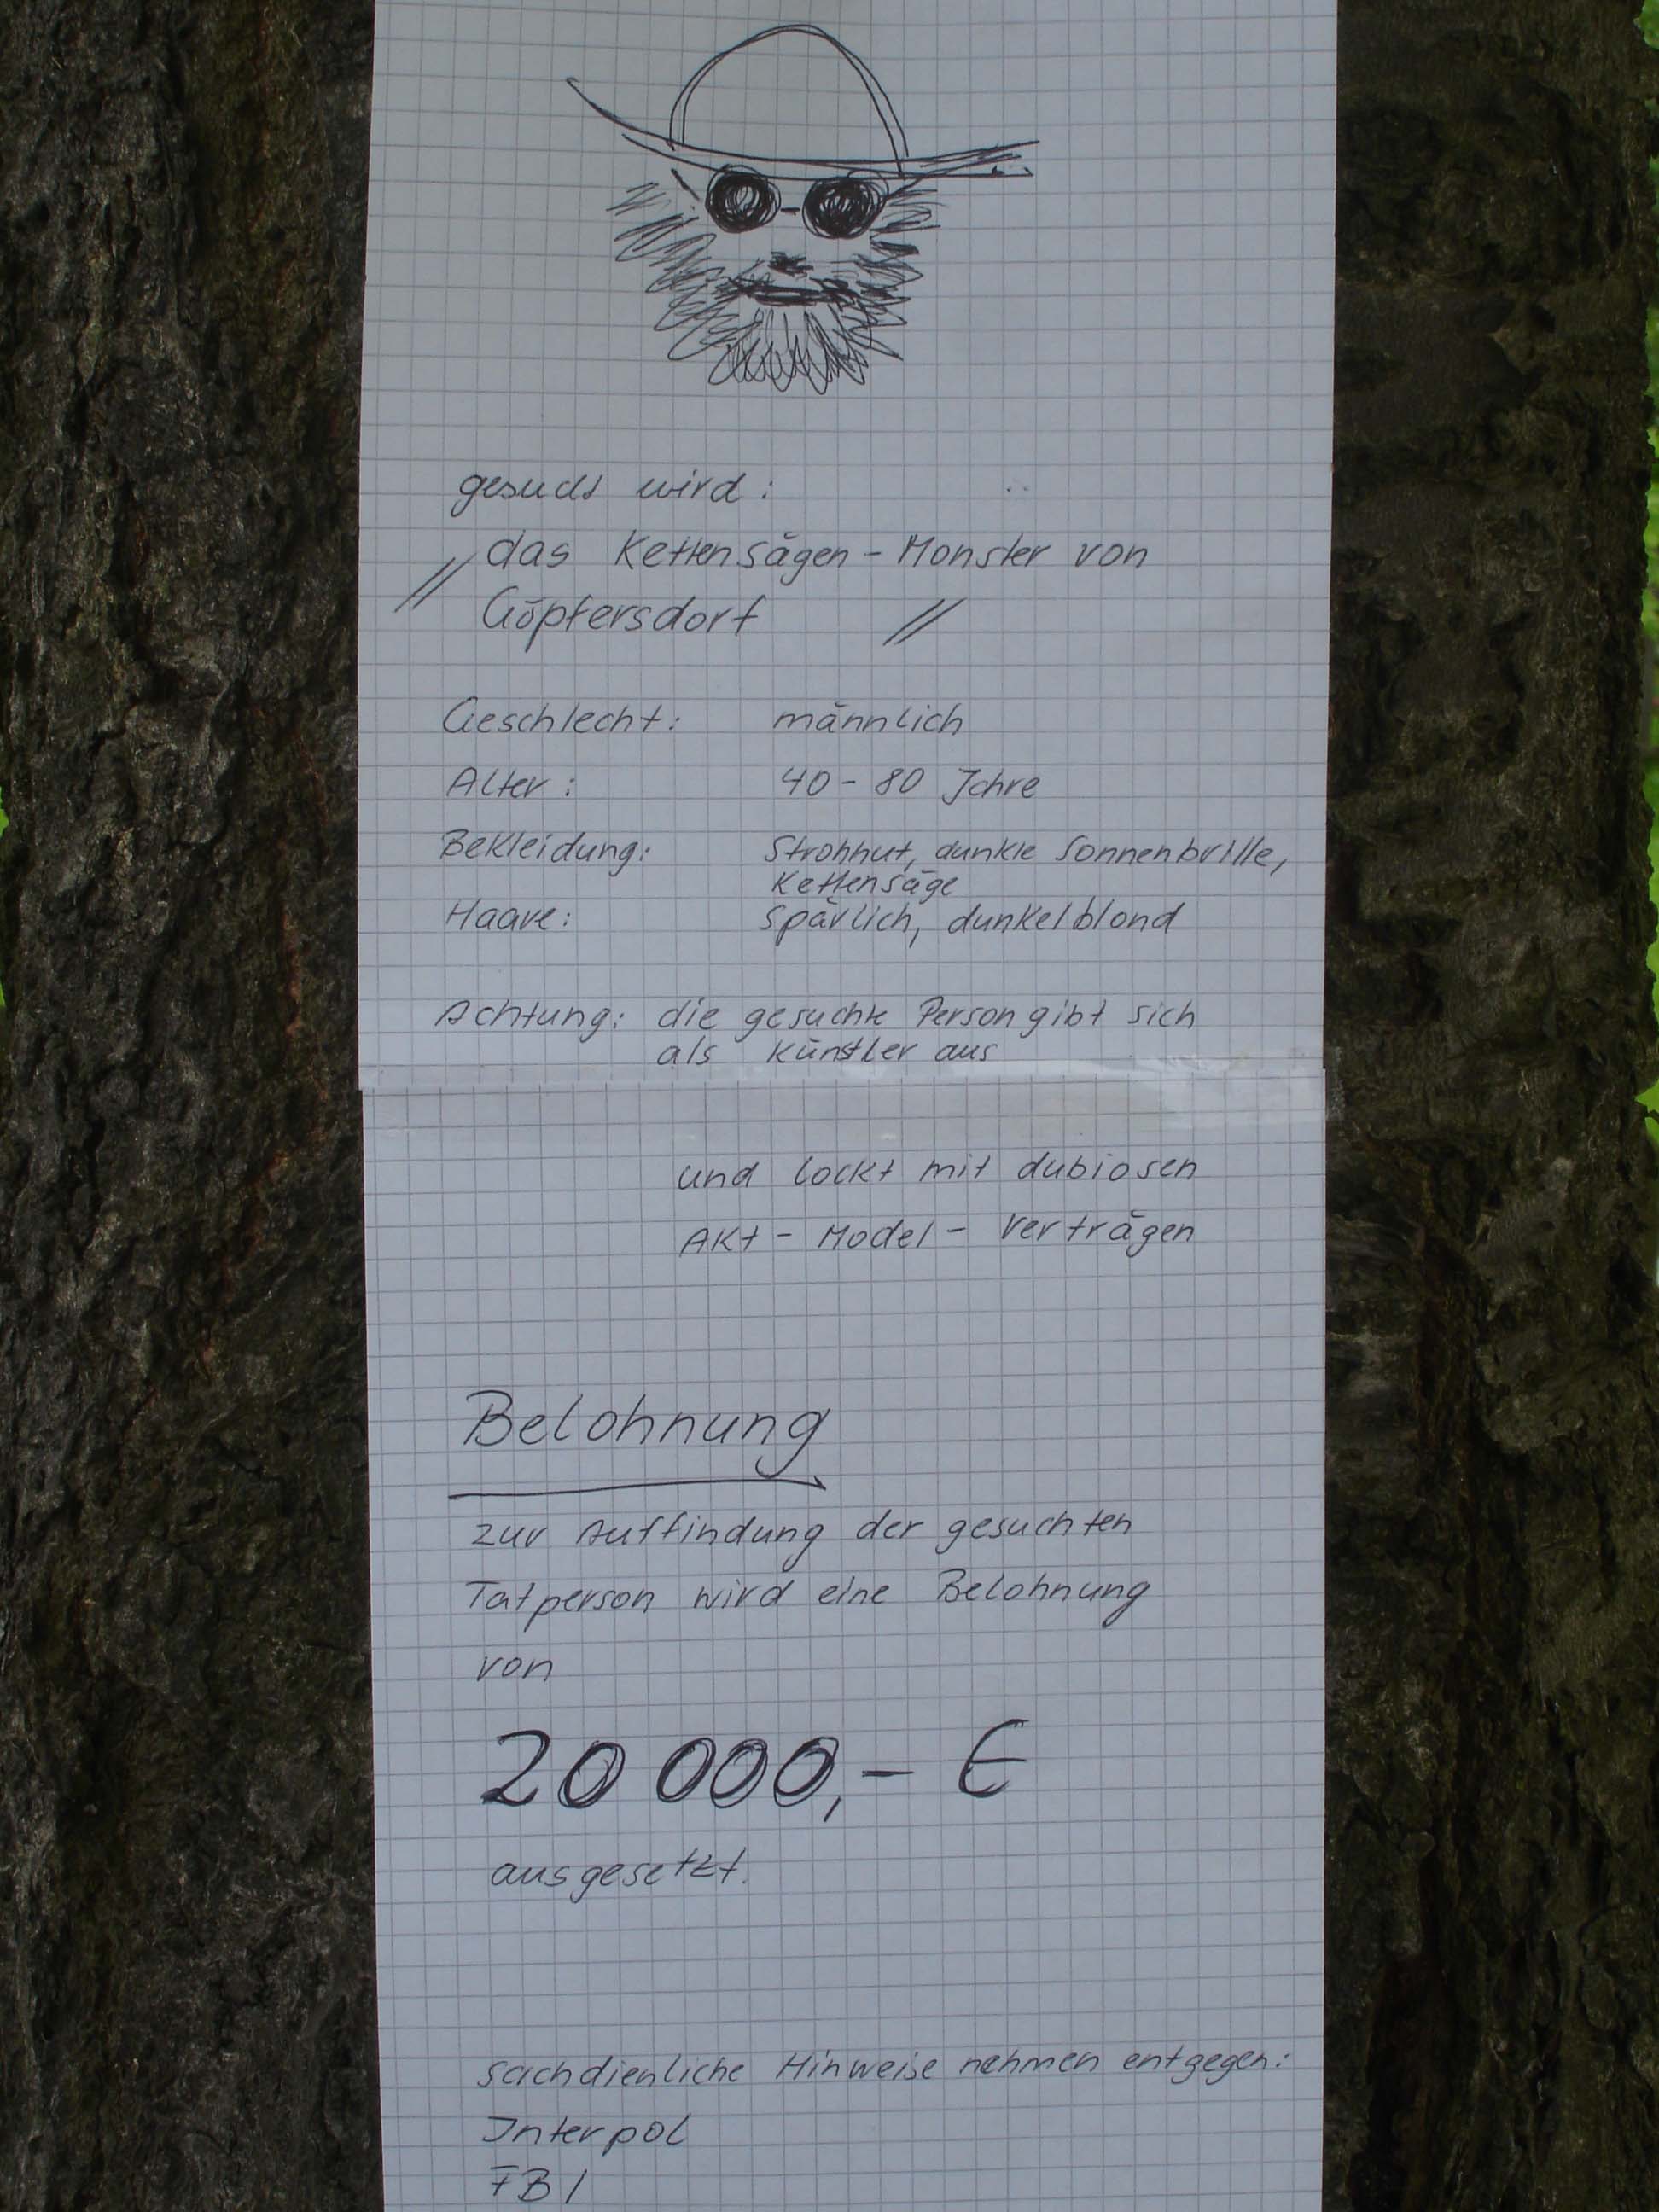 gesucht wird:
das Kettensägen-Monster von
// Göpfersdorf //
Geschlecht: männlich
Alter: 40-80 Jahre
Bekleidung: Strohhut, dunkle Sonnenbrille,
Kettensäge
Haare: spärlich, dunkelblond
Achtung: die gesuchte Person gibt sich
als Künstler aus
und lockt mit dubiosen
Akt-Model-Verträgen
Belohnung
zur Auffindung der gesuchten
Tatperson wird eine Belohnung
von
20 000,- €
ausgesetzt.
sachdienliche Hinweise nehmen entgegen:
Interpol
FBI